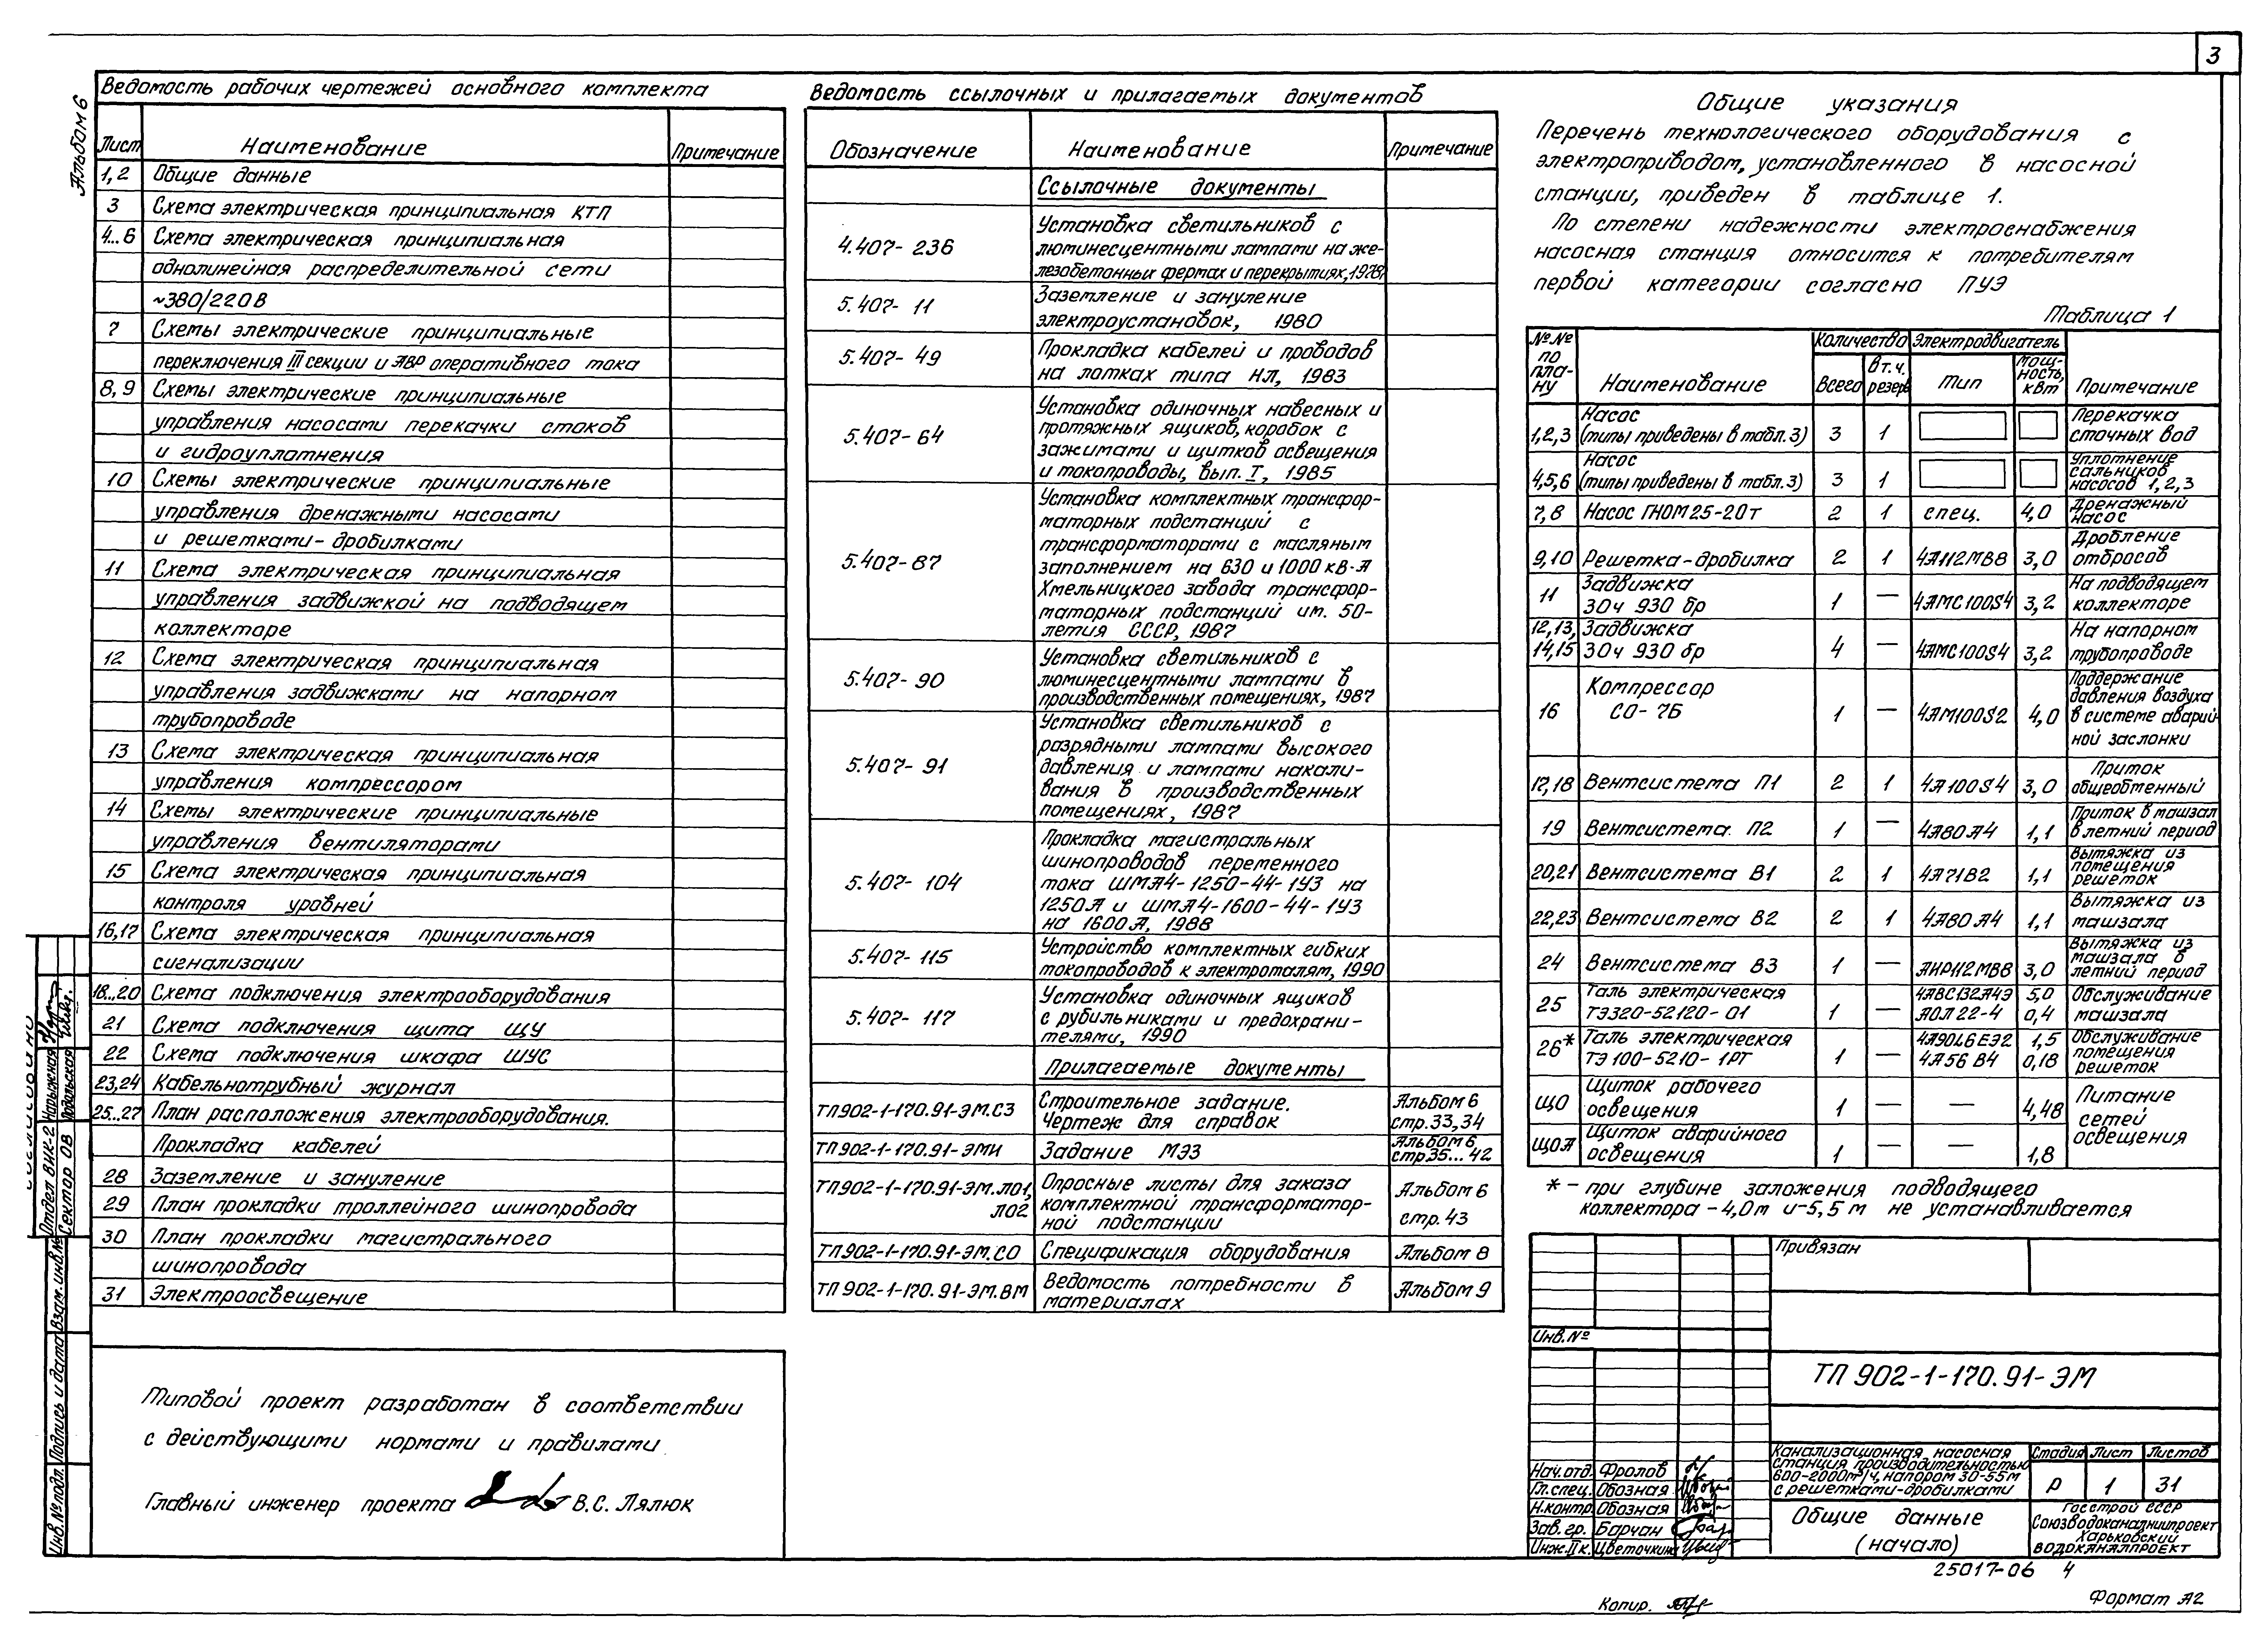 3
Альбом 6
Ведомость рабочих чертежей основного комплекта
Лист Наименование Примечание
1, 2 Общие данные
3 Схема электрическая принципиальная КТП
4...6 Схема электрическая принципиальная
однолинейная распределительной сети
~380/220В
7 Схемы электрические принципиальные
переключения III секции и АВР оперативного тока
8, 9 Схемы электрические принципиальные
управления насосами перекачки стоков
и гидроуплотнения
10 Схемы электрические принципиальные
управления дренажными насосами
и решетками-дробилками
11 Схема электрическая принципиальная
управления задвижкой на подводящем
коллекторе
12 Схема электрическая принципиальная
управления задвижками на напорном
трубопроводе
13 Схема электрическая принципиальная
управления компрессором
14 Схемы электрические принципиальные
управления вентиляторами
15 Схема электрическая принципиальная
контроля уровней
16,17 Схема электрическая принципиальная
сигнализации
18...20 Схема подключения электрооборудования
21 Схема подключения щита ЩУ
22 Схема подключения шкафа ШУС
23,24 Кабельнотрубный журнал
25...27 План расположения электрооборудования.
Прокладка кабелей
28 Заземление и зануление
29 План прокладки троллейного шинопровода
30 План прокладки магистрального
шинопровода
31 Электроосвещение
Типовой проект разработан в соответствии
с действующими нормами и правилами
Главный инженер проекта В.С. Лялюк
Ведомость ссылочных и прилагаемых документов
Обозначение Наименование Примечание
Ссылочные документы
4.407-236 Установка светильников с
люминесцентными лампами на же-
лезобетонных фермах и перекрытиях, 1978г
5.407-11 Заземление и зануление
электроустановок, 1980
5.407-49 Прокладка кабелей и проводов
на лотках типа НЛ, 1983
5.407-64 Установка одиночных навесных и
протяжных ящиков, коробок с
зажимами и щитков освещения
и токопроводы, вып. I, 1985
5.407-87 Установка комплектных трансфор-
маторных подстанций с
трансформаторами с масляным
заполнением на 630 и 1000 кВ·А
Хмельницкого завода трансфор-
маторных подстанций им. 50-
летия СССР, 1987
5.407-90 Установка светильников с
люминесцентными лампами в
производственных помещениях, 1987
5.407-91 Установка светильников с
разрядными лампами высокого
давления и лампами накали-
вания в производственных
помещениях, 1987
5.407-104 Прокладка магистральных
шинопроводов переменного
тока ШМА4-1250-44-1У3 на
1250А и ШМА4-1600-44-1У3
на 1600А, 1988
5.407-115 Устройство комплектных гибких
токопроводов к электроталям, 1990
5.407-117 Установка одиночных ящиков
с рубильниками и предохрани-
телями, 1990
Прилагаемые документы
ТП902-1-170.91-ЭМ.СЗ Строительное задание. Альбом 6
Чертеж для справок стр. 33,34
ТП902-1-170.91-ЭМИ Задание МЭЗ Альбом 6,
стр 35...42
ТП902-1-170.91-ЭМ.ЛО1, Опросные листы для заказа Альбом 6
ЛО2 комплектной трансформатор- стр. 43
ной подстанции
ТП902-1-170.91-ЭМ.СО Спецификация оборудования Альбом 8
ТП 902-1-170.91-ЭМ.ВМ Ведомость потребности в Альбом 9
материалах
Общие указания
Перечень технологического оборудования с
электроприводом, установленного в насосной
станции, приведен в таблице 1.
По степени надежности электроснабжения
насосная станция относится к потребителям
первой категории согласно ПУЭ
Таблица 1
№№ по пла-ну Наименование Количество Всего В т.ч. резерв Электродвигатель Тип Мощ-ность, кВт Примечание
1,2,3 Насос (типы приведены в табл. 3) 3 1 Перекачка сточных вод
4,5,6 Насос (типы приведены в табл. 3) 3 1 Уплотнение сальников насосов 1,2,3
7,8 Насос ГНОМ 25-20т 2 1 спец. 4,0 Дренажный насос
9,10 Решетка-дробилка 2 1 4А112МВ8 3,0 Дробление отбросов
11 Задвижка 30ч 930 бр 1 — 4АМС100S4 3,2 На подводящем коллекторе
12,13, 14,15 Задвижка 30ч 930 бр 4 — 4АМС100S4 3,2 На напорном трубопроводе
16 Компрессор СО-7Б 1 — 4АМ100S2 4,0 Поддержание давления воздуха в системе аварий-ной заслонки
17,18 Вентсистема П1 2 1 4А100S4 3,0 Приток общеобменный
19 Вентсистема П2 1 — 4А80А4 1,1 Приток в машзал в летний период
20,21 Вентсистема В1 2 1 4А71В2 1,1 Вытяжка из помещения решеток
22,23 Вентсистема В2 2 1 4А80А4 1,1 Вытяжка из машзала
24 Вентсистема В3 1 — АИР112МВ8 3,0 Вытяжка из машзала в летний период
25 Таль электрическая ТЭ320-52120-01 1 — 4АВС132А4Э 5,0 АОЛ 22-4 0,4 Обслуживание машзала
26* Таль электрическая ТЭ100-5210-1РТ 1 — 4А90L6ЕЭ2 1,5 4А56В4 0,18 Обслуживание помещения решеток
ЩО Щиток рабочего освещения 1 — — 4,48 Питание сетей освещения
ЩОА Щиток аварийного освещения 1 — — 1,8
* - при глубине заложения подводящего
коллектора -4,0м и -5,5 м не устанавливается
Привязан
Инв.№
ТП 902-1-170.91-ЭМ
Канализационная насосная
станция производительностью
600-2000м³/ч, напором 30-55м
с решетками-дробилками
Стадия Лист Листов
Р 1 31
Нач.отд. Фролов
Гл.спец. Обозная
Н.контр. Обозная
Зав. гр. Барчан
Инж.IIк. Цветочкина
Общие данные
(начало)
Госстрой СССР
Союзводоканалниипроект
Харьковский
водоканалпроект
25017-06 4
Копир.
Формат А2
Согласовано
Отдел ВНК-2 Нарыжная
Сектор ОВ Подольская
Инв.№ подл. Подпись и дата Взам.инв.№